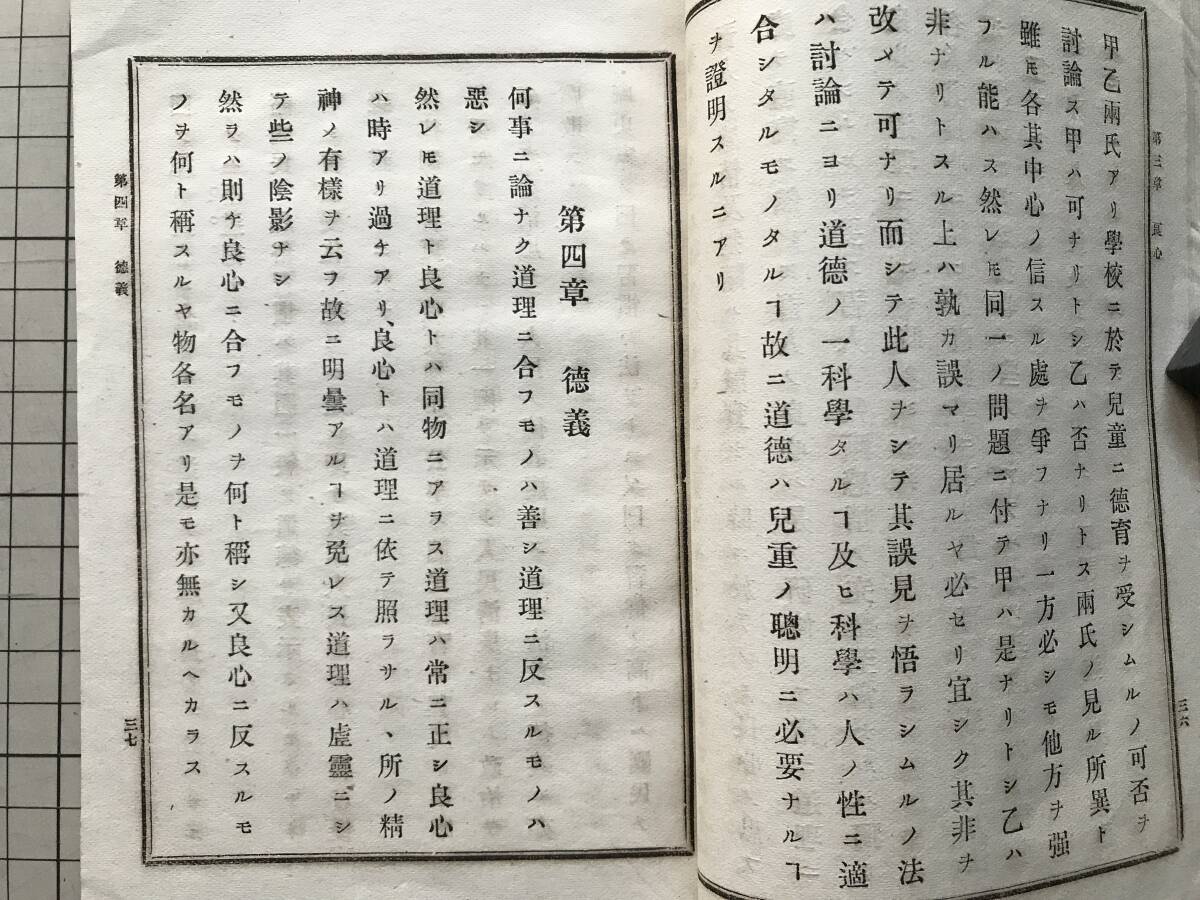 第三章 良心
甲乙兩氏アリ學校ニ於テ兒童ニ德育ヲ受シムルノ可否ヲ
討論ス甲ハ可ナリトシ乙ハ否ナリトス兩氏ノ見ル所異ト
雖𪜈各其中心ノ信スル處ヲ爭フナリ一方必シモ他方ヲ强
フル能ハス然レ𪜈同一ノ問題ニ付テ甲ハ是ナリトシ乙ハ
非ナリトスル上ハ孰カ誤マリ居ルヤ必セリ宜シク其非ヲ
改メテ可ナリ而シテ此人ヲシテ其誤見ヲ悟ラシムルノ法
ハ討論ニヨリ道德ノ一科學タルヿ及ヒ科學ハ人ノ性ニ適
合シタルモノタルヿ故ニ道德ハ兒重ノ聰明ニ必要ナルヿ
ヲ證明スルニアリ
三六
第四章 德義
何事ニ論ナク道理ニ合フモノハ善シ道理ニ反スルモノハ
惡シ
然レ𪜈道理ト良心トハ同物ニアラス道理ハ常ニ正シ良心
ハ時アリ過チアリ、良心トハ道理ニ依テ照ラサルヽ所ノ精
神ノ有樣ヲ云フ故ニ明曇アルヿヲ免レス道理ハ虛靈ニシ
テ些ノ陰影ナシ
然ヲハ則チ良心ニ合フモノヲ何ト稱シ又良心ニ反スルモ
ノヲ何ト稱スルヤ物各名アリ是モ亦無カルヘカラス
第四章 德義
三七